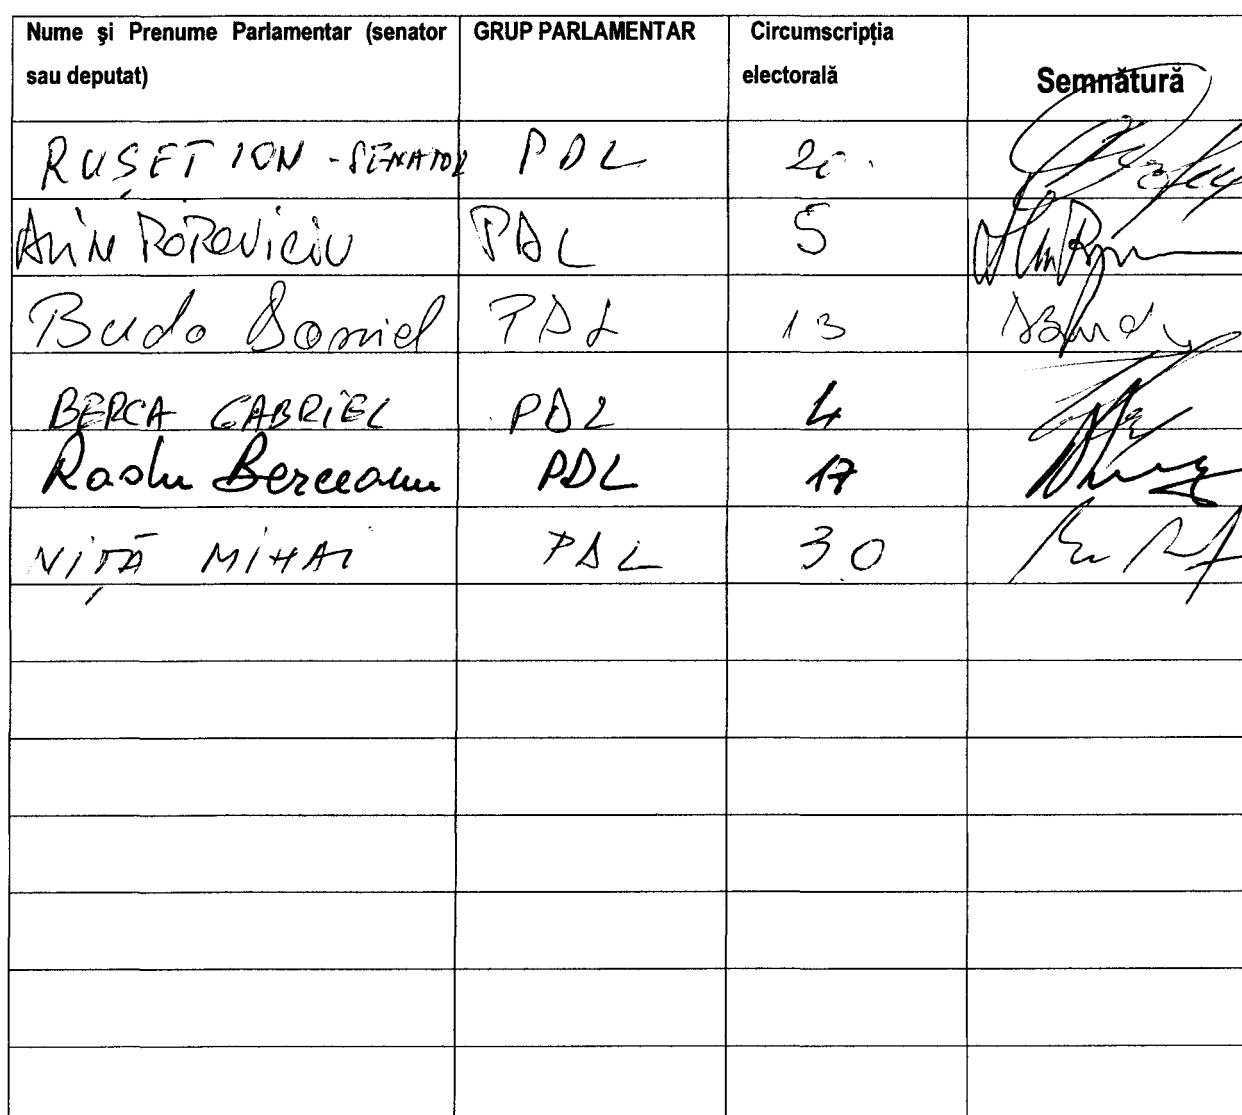 Nume și Prenume Parlamentar (senator sau deputat) GRUP PARLAMENTAR Circumscripția electorală Semnătură
RUȘET ION - SENATOR PDL 20.
Alin POPOVICIU PDL 5
Buda Daniel PDL 13
BERCA GABRIEL PDL 4
Radu Berceanu PDL 17
NIȚĂ MIHAI PDL 30